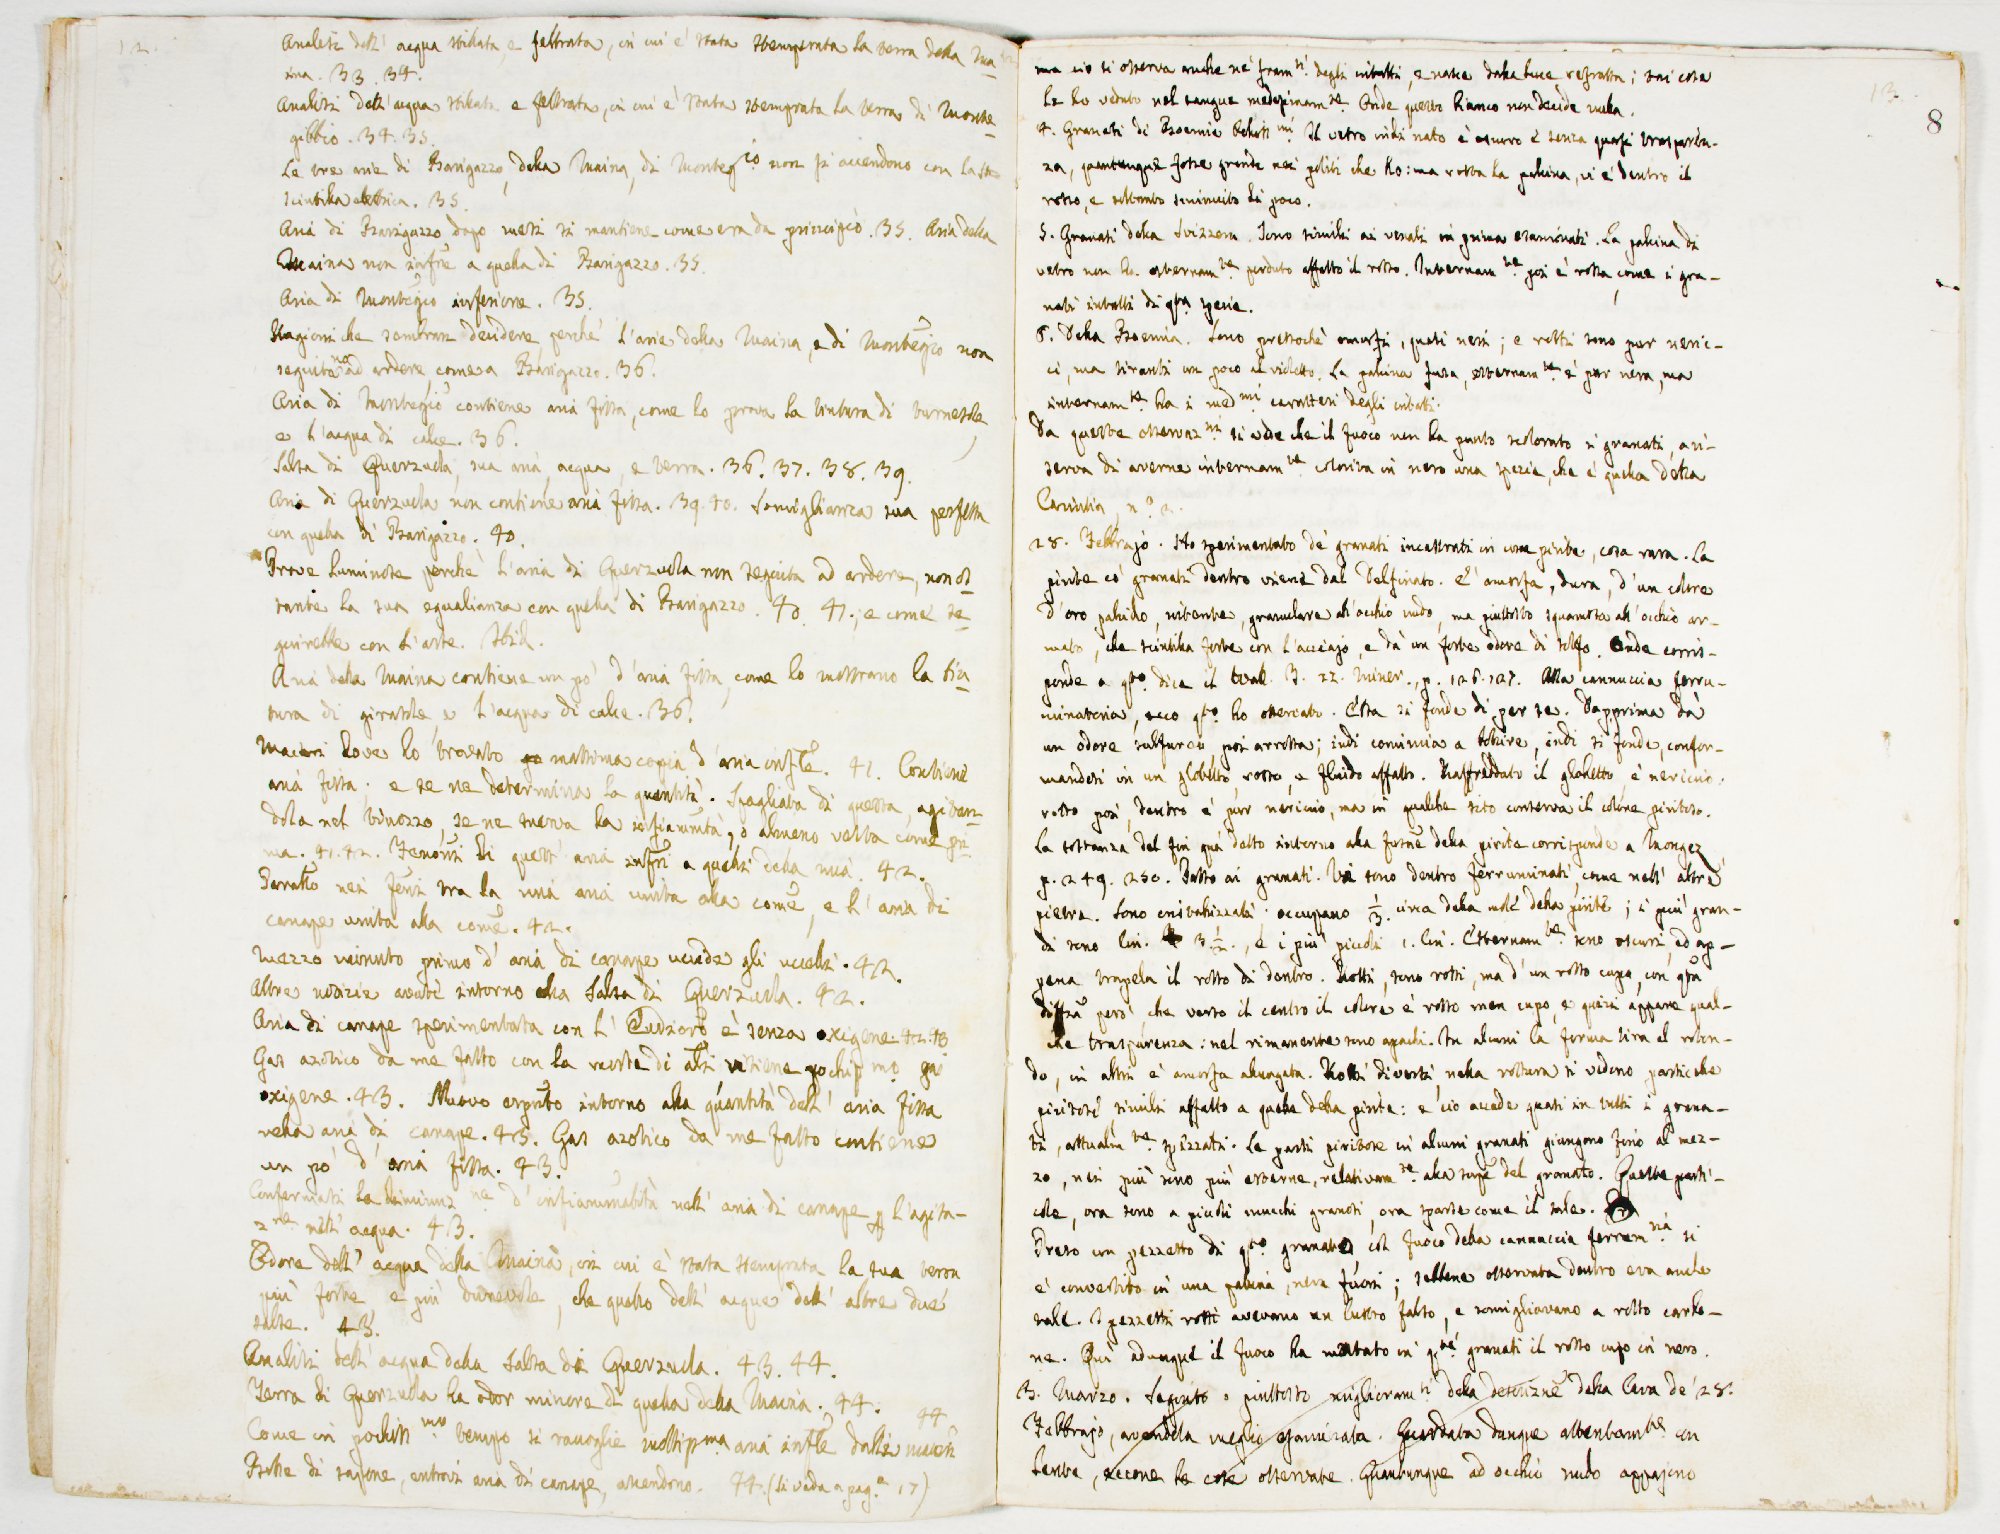 12.
Analisi dell' acqua stillata, e feltrata, in cui è stata stemperata la terra della Ma=
ina. 33. 34.
Analisi dell' acqua stillata e feltrata, in cui è stata stemprata la terra di Monte=
gibbio. 34. 35.
Le tre arie di Barigazzo, della Maina, di Montegio non si accendono con la
scintilla elettrica. 35.
Aria di Barigazzo dopo mesi si mantiene come era da principio. 35. Aria della
Maina non infre a quella di Barigazzo. 35.
Aria di Montegio inferiore. 35.
Ragioni che sembran decidere perchè l'aria della Maina, e di Montegio non
seguitano ad ardere come a Barigazzo. 36.
Aria di Montegio contiene aria fissa, come lo prova la tintura di turnesole
e l'acqua di calce. 36.
Salsa di Querzuola, sua aria, acqua, e terra. 36. 37. 38. 39.
Aria di Querzuola non contiene aria fissa. 39. 40. Somiglianza sua perfetta
con quella di Barigazzo. 40.
Prove luminose perchè l'aria di Querzuola non seguita ad ardere, non os
tante la sua egualianza con quella di Barigazzo. 40. 41.; e come se=
guirebbe con l'arte. Ibid.
Aria della Maina contiene un po' d'aria fissa, come lo mostrano la tin=
tura di girasole, e l'acqua di calce. 36.
Maceri dove ho trovato massima copia d'aria infle. 41. Contiene
aria fissa; e se ne determina la quantità. Spogliata di questa, agitan=
dola nel tinozzo, se ne snerva la infiammtà, o almeno resta come pri=
ma. 41. 42. Fenomi di quest' aria infri a quelli della mia. 42.
Paratto nei feni tra la mia aria unita alla come, e l'aria di
canape unita alla come. 42.
Mezzo minuto primo d'aria di canape uccide gli uccelli. 42.
Altre notizie avute intorno alla Salsa di Querzuola. 42.
Aria di canape sperimentata con l'Eudioro è senza oxigene. 42. 43
Gas azotico da me fatto con la morte di ali ritiene pochismo gas
oxigene. 43. Nuovo esprto intorno alla quantità dell' aria fissa
nella aria di canape. 43. Gas azotico da me fatto contiene
un po' d'aria fissa. 43.
Confermasi la diminuzne d'infiammabilità nell' aria di canape p l'agita-
zne nell' acqua. 43.
Odore dell' acqua della Maina, in cui è stata stemprata la sua terra
più forte e più durevole, che quello dell' acque dell' altre due
salse. 43.
Analisi dell' acqua della Salsa di Querzuola. 43. 44.
Terra di Querzuola ha odor minore di quella della Maina. 44.
Come in pochissmo tempo si raccoglie moltissma aria infle dalli maceri 44
Bolle di sapone, entrovi aria di canape, accendono. 44. (Si vada a pag.a 17)
13.
8
ma ciò si osserva anche ne' framti degli intatti, e nasce dalla luce refratta; tai cosa
la ho veduto nel sangue medesimamte. Onde questo bianco non decide nulla.
4. Granati di Boemia belissmi. Il vetro indi nato è oscuro e senza quasi trasparen-
za, quantunque fosse grande nei politi che ho: ma rotta la pallina, vi è dentro il
rosso, e soltanto sminuito di poco.
5. Granati della Svizzera. Sono simili ai veneti in prima esaminati. La pallina di
vetro non ha esternamte perduto affatto il rosso. Internamte poi è rossa, come i gra-
nati intatti di qta spezie.
6. Della Boemia. Sono pressochè amorfi, quasi neri; e rotti sono pur neric-
ci, ma tiranti un poco al violetto. La pallina fusa, esternamte è pur nera, ma
internamte ha i medmi caratteri degli intatti.
Da queste osservazni si vede che il fuoco non ha punto scolorato i granati, a ri-
serva di averne internamte colorita in nero una spezie, che è quella della
Carintia, n.o 2.
28. Febbrajo. Ho sperimentato de' granati incastrati in una pirite, cosa rara. La
pirite co' granati dentro viene dal Delfinato. E' amorfa, dura, d'un colore
d'oro pallido, nitente, granulare all'occhio nudo, ma piuttosto squamosa all'occhio ar-
mato, che scintilla forte con l'acciajo, e dà un forte odore di solfo. Onde corris-
ponde a qto dice il Wall. T. 22. Miner., p. 126. 127. Alla cannuccia ferru-
minatoria, ecco qto ho osservato. Essa si fonde di per se. Dapprima dà
un odore sulfureo, poi arrossa; indi comincia a bolire, indi si fonde, confor-
mandosi in un globetto rosso, e fluido affatto. Raffreddato il globetto è nericcio:
rotto poi, dentro è pur nericcio, ma in qualche sito conserva il colore piritoso.
La sostanza del fin quà detto intorno alla forme della pirite corrisponde a Mongez
p. 249. 250. Passo ai granati. Vi sono dentro ferruminati, come nell' altre
pietre. Sono cristallizzati: occupano 1/3 circa della mole della pirite; i più gran-
di sono lin. 3 1/2., e i più piccoli 1. lin. Esternamte sono oscuri, ed ap-
pena trapela il rosso di dentro. Rotti, sono rossi, ma d'un rosso cupo, con qta
diffza però che verso il centro il colore è rosso men cupo, e quivi appare qual-
che trasparenza: nel rimanente sono opachi. In alcuni la forma tira al roton-
do, in altri è amorfa alungata. Rotti diversi, nella rottura si vedono particelle
piritose simili affatto a quelle della pirite: e ciò accade quasi in tutti i grana-
ti, attualmte spezzati. Le parti piritose in alcuni granati giungono fino al mez-
zo, nei più sono più esterne, relativamte alla supe del granato. Queste parti-
celle, ora sono a piccoli mucchi grandi, ora sparse come il sale.
Preso un pezzetto di qto granato col fuoco della cannuccia ferrumria si
è convertito in una pallina, nera fuori; sebbene osservata dentro era anche
tale. I pezzetti rotti avevano un lustro falso, e somigliavano a rotto carbo-
ne. Quì adunque il fuoco ha mutato in qti granati il rosso cupo in nero.
3. Marzo. Seguito o piuttosto miglioramti della descrizne della Cava de' 28.
Febbrajo, avendola meglio esaminata. Guardata dunque attentamte con
lente, eccone le cose osservate. Quantunque ad occhio nudo appajono